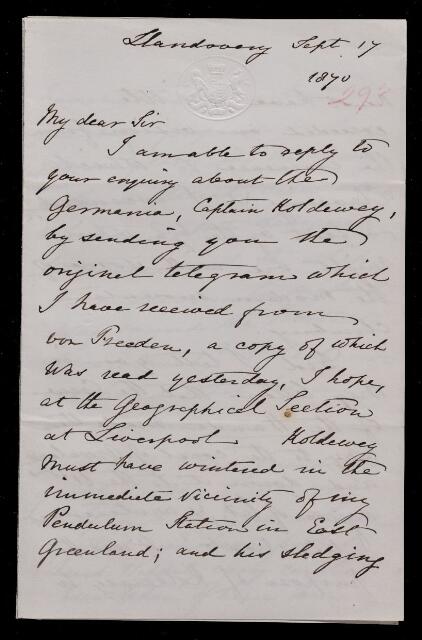 Llandovery Sept 17
1870
293
My dear Sir
I am able to reply to
your enquiry about the
Germania, Captain Koldewey,
by sending you the
original telegram which
I have received from
von Freeden, a copy of which
was read yesterday, I hope,
at the Geographical Section
at Liverpool Koldewey
must have wintered in the
immediate vicinity of my
Pendulum Station in East
Greenland; and his sledging